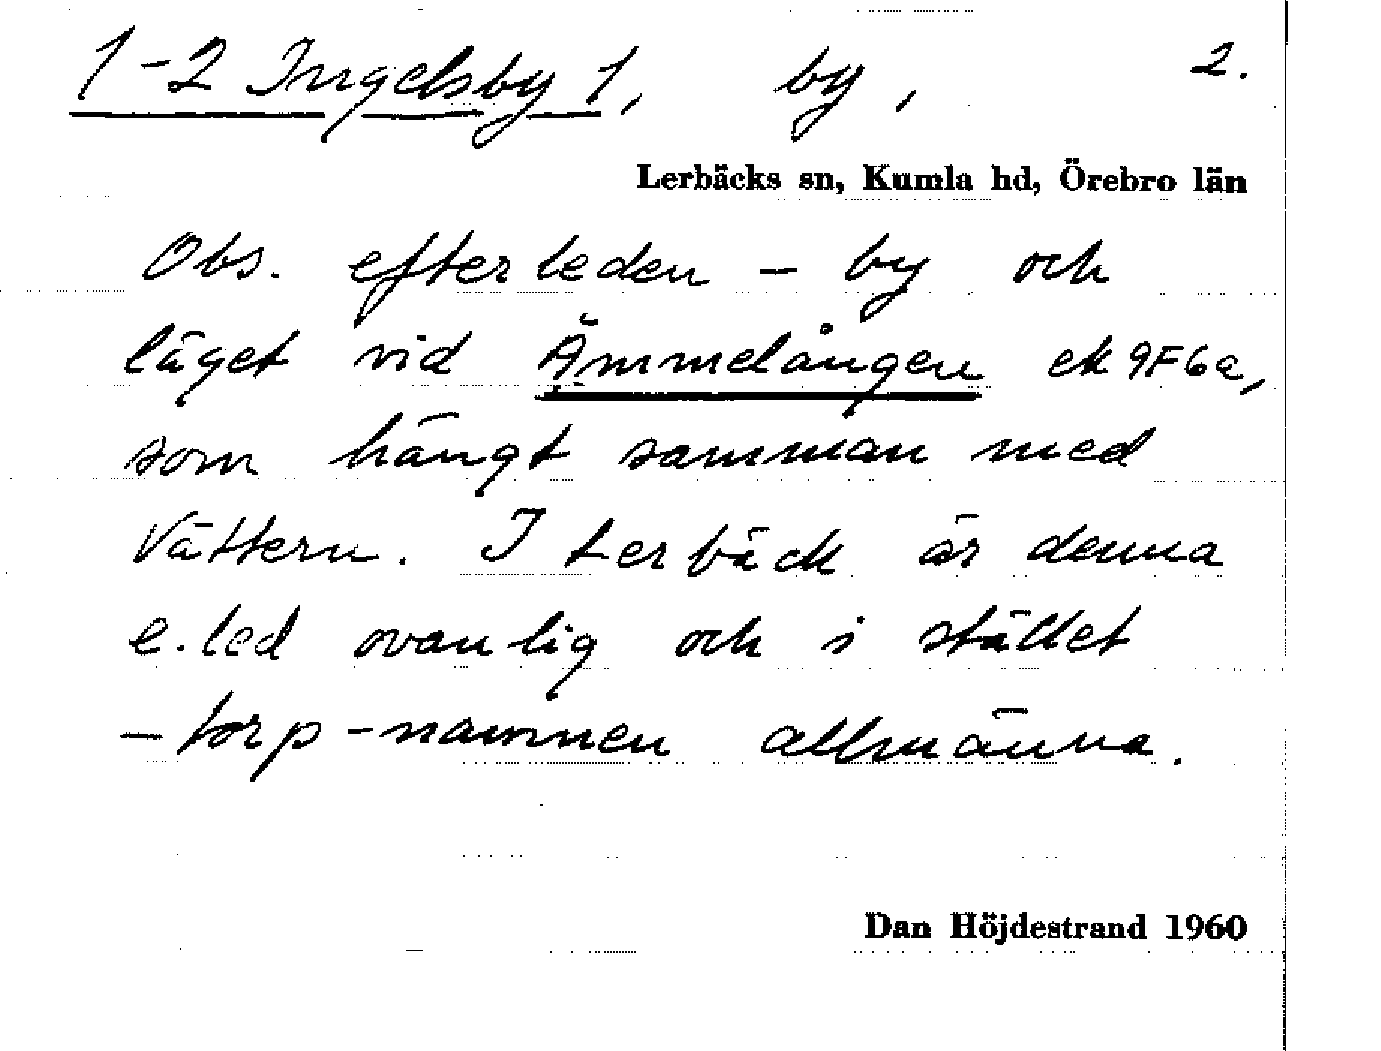 1-2 Ingelsby 1, by, 2.
Lerbäcks sn, Kumla hd, Örebro län
Obs. efterleden - by och
läget vid Ämmelången ek 9F6a,
som hängt samman med
Vättern. I Lerbäck är denna
e.led ovanlig och i stället
- torp - namnen allmänna.
Dan Höjdestrand 1960